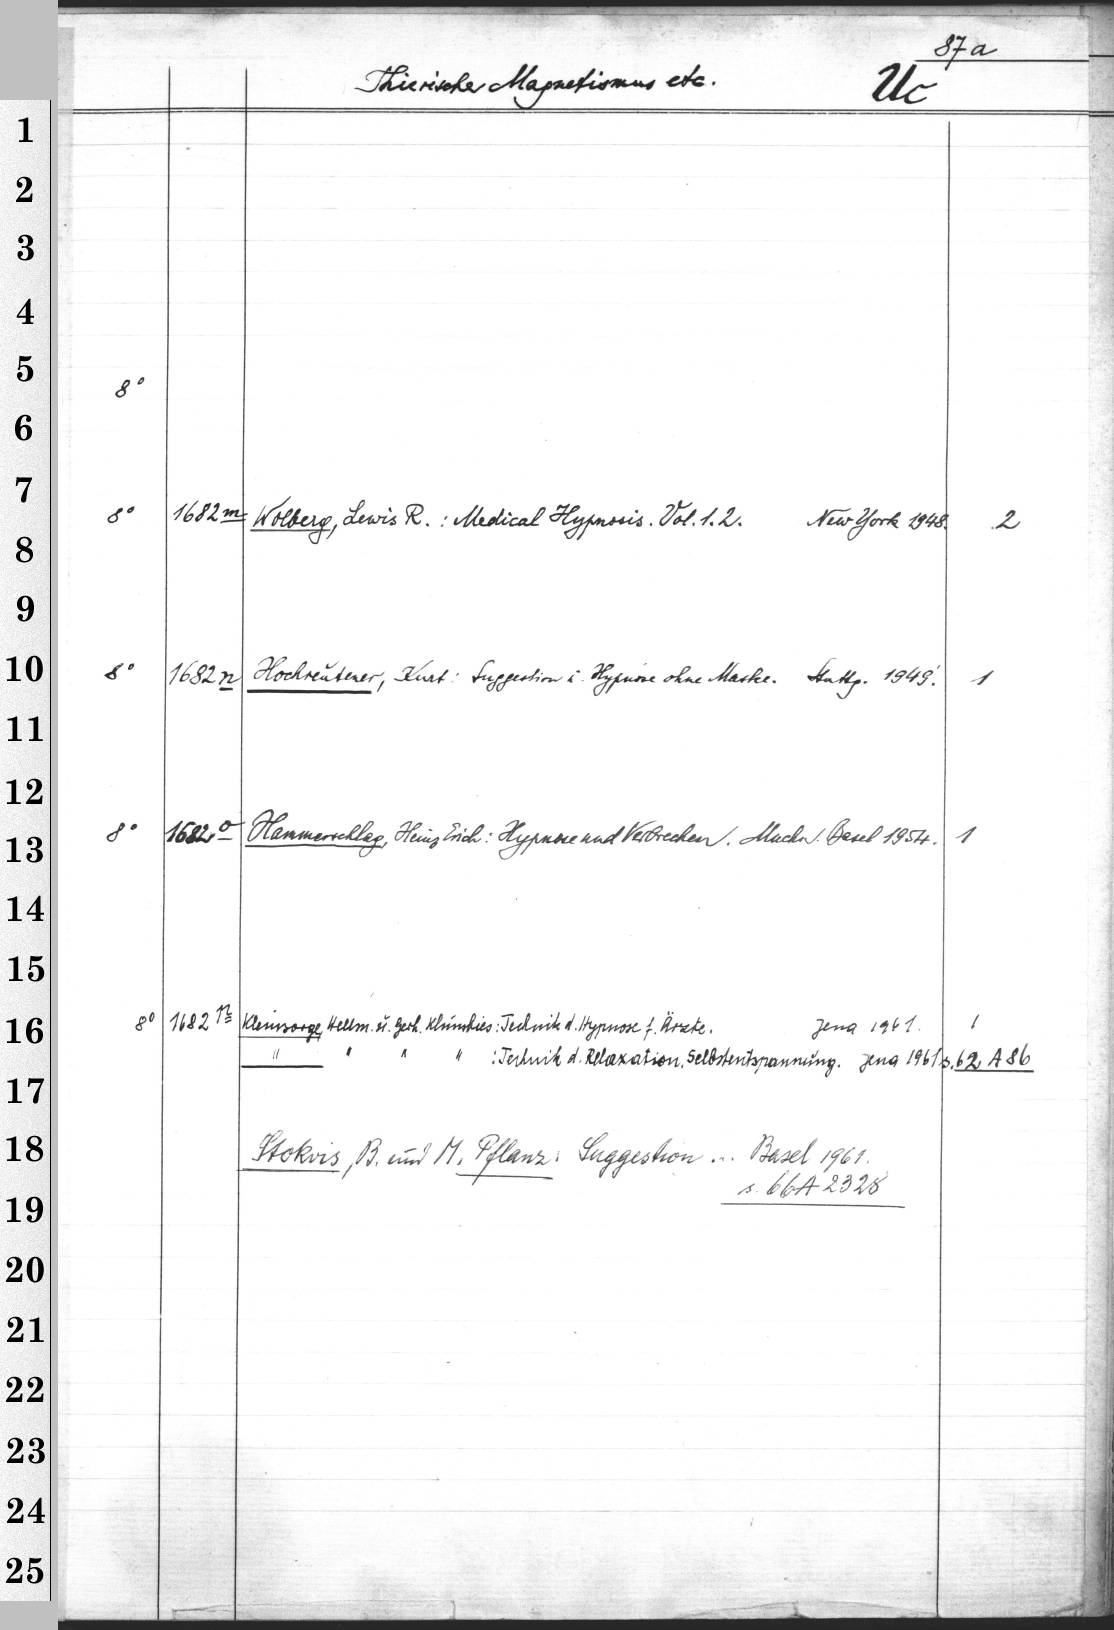 87a
Thierischer Magnetismus etc. Uc
1
2
3
4
5
8°
6
7
8° 1682m Wolberg, Lewis R.: Medical Hypnosis. Vol. 1.2. New York 1948. 2
8
9
10 8° 1682n Hochreutener, Kurt: Suggestion i. Hypnose ohne Maske. Stuttg. 1949. 1
11
12
13 8° 1682o Hammerschlag, Heinz Erich: Hypnose und Verbrechen. Mchn. Basel 1954. 1
14
15
16 8° 1682 Kleinsorge, Hellm. u. Gerh. Klumbies: Technik d. Hypnose f. Ärzte. Jena 1961. 1
" " " " : Technik d. Relaxation, Selbstentspannung. Jena 1961 s. 62 A 86
17
18 Stokvis, B. und M. Pflanz: Suggestion ... Basel 1961.
s. 66 A 2328
19
20
21
22
23
24
25